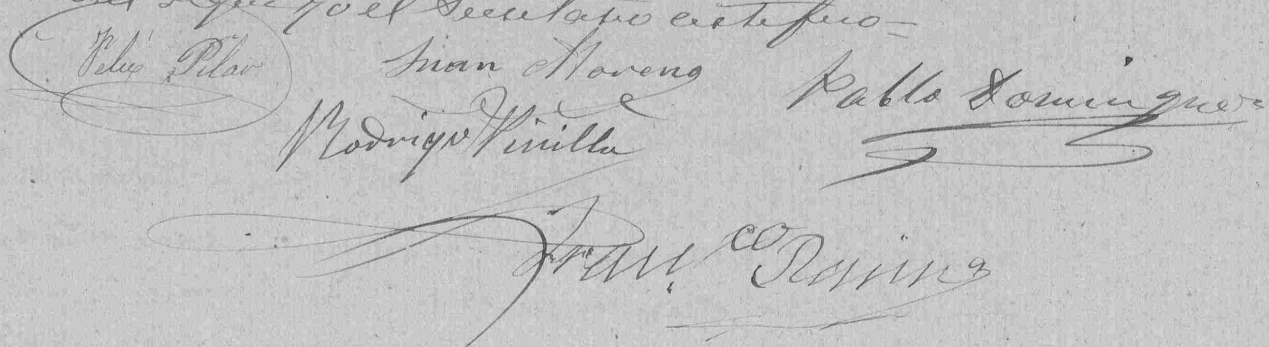 que yo el Secretario certifico=
Félix Pilar Juan Moreno Pablo Domínguez
Rodrigo Vinilla
Fran.co Ramírez